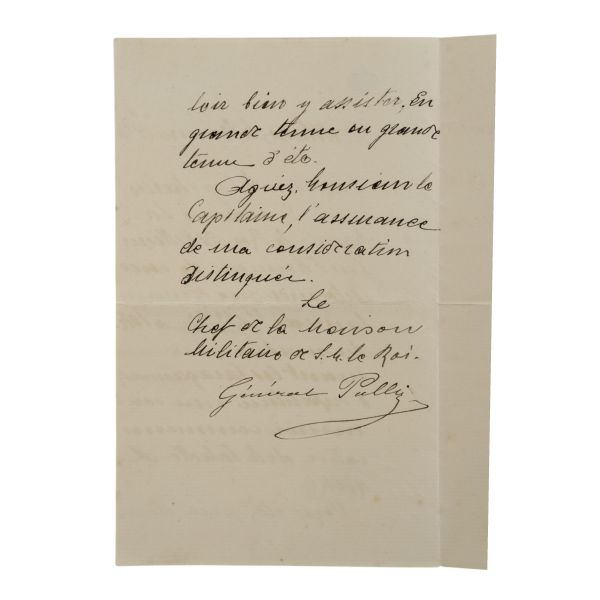 loir bien y assister, En
grande tenue ou grande
tenue d'été.
Agréez, Monsieur le
Capitaine, l'assurance
de ma considération
distinguée.
Le
Chef de la Maison
Militaire de S.M. le Roi.
Général